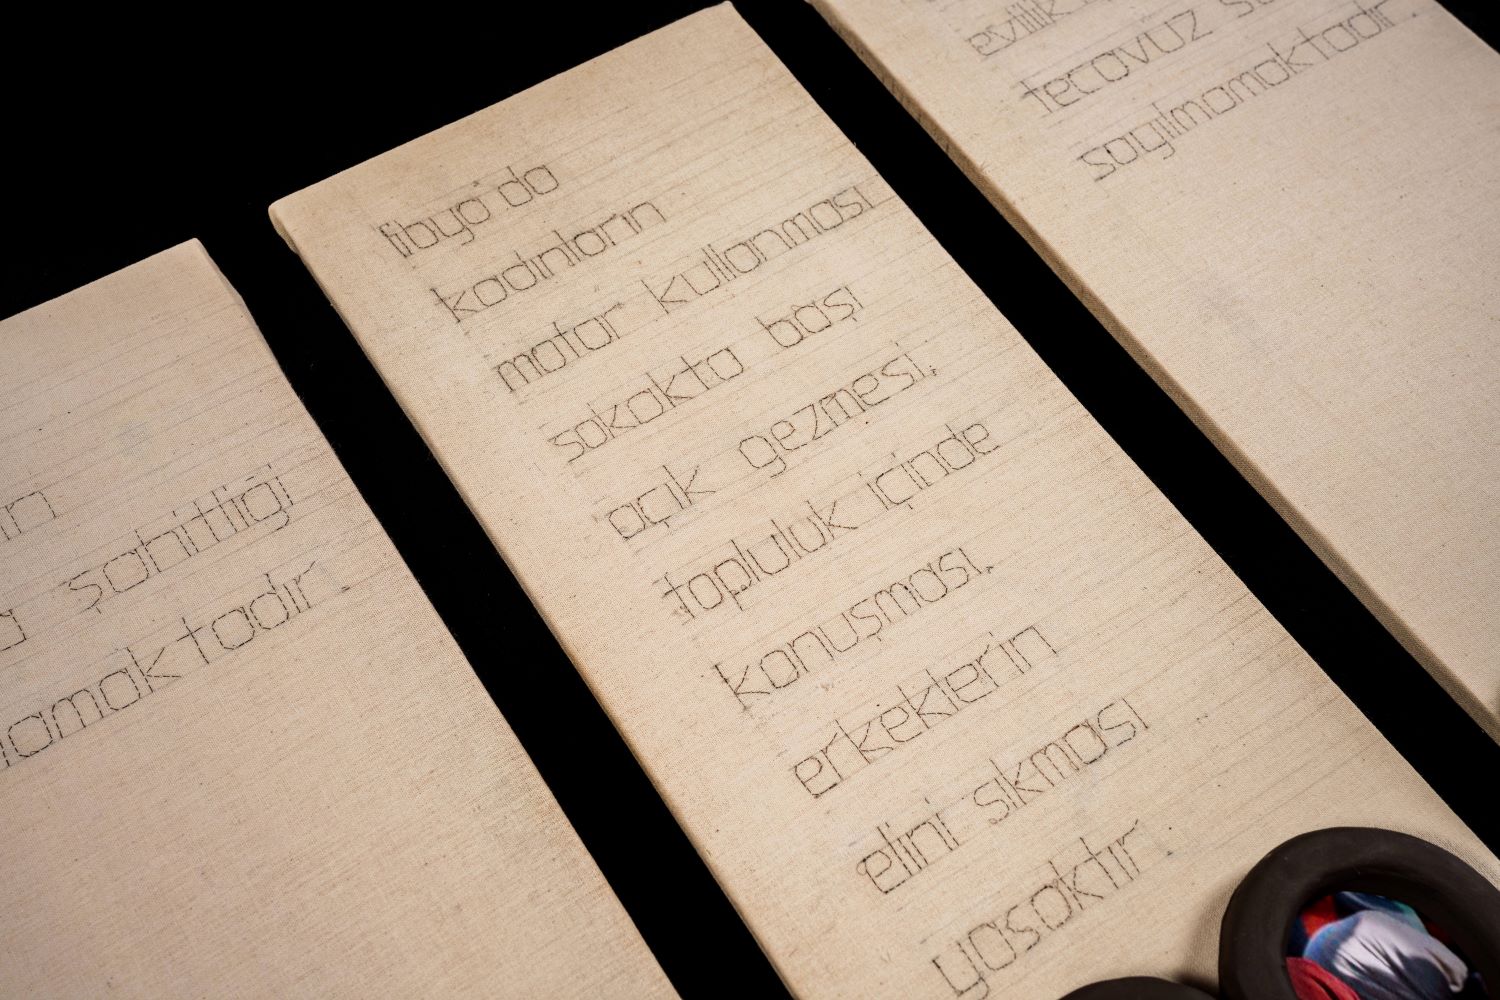 ın
şahitliği
amaktadır.
libya da
kadınların
motor kullanması
sokakta başı
açık gezmesi,
topluluk içinde
konuşması,
erkeklerin
elini sıkması
yasaktır.
evlilik
tecavüz
sayılmamaktadır.